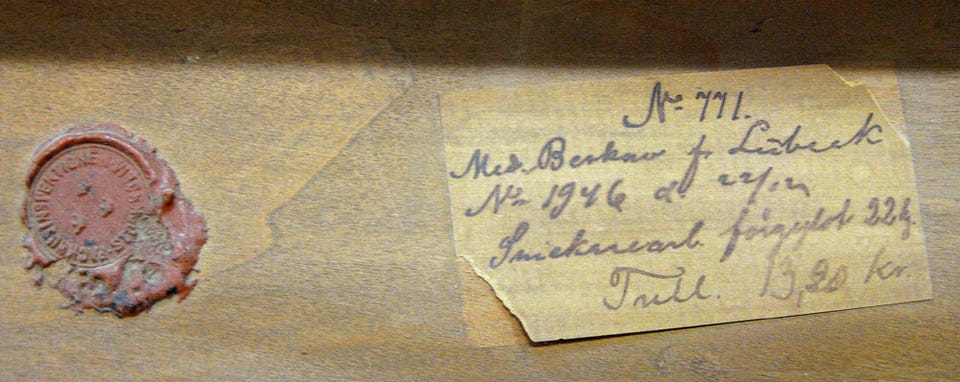 No 771.
Med. f. Lübeck
No 1946 d. 22/12
Snickeriarb. förgyldt 22 kg.
Tull. 13,20 kr.